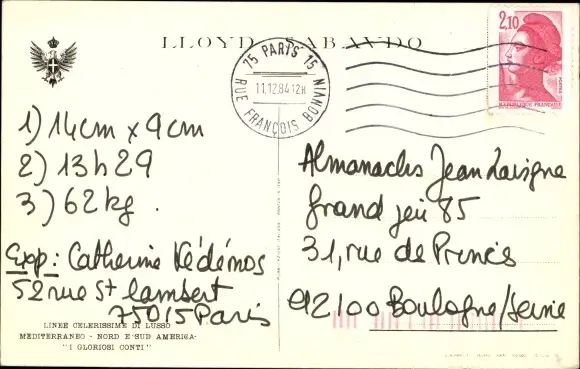 LLOYD SABAUDO
75 PARIS 15
11.12.84 12H
RUE FRANÇOIS BONVIN
2,10
REPUBLIQUE FRANÇAISE
1) 14cm x 9cm
2) 13h29
3) 62kg.
Exp: Catherine Védémos
52 rue St lambert
75015 Paris
LINEE CELERISSIME DI LUSSO
MEDITERRANEO - NORD E SUD AMERICA-
"I GLORIOSI CONTI"
Almanachs Jean Lavigne
Grand jeu 85
31, rue de
92100 Boulogne/Seine